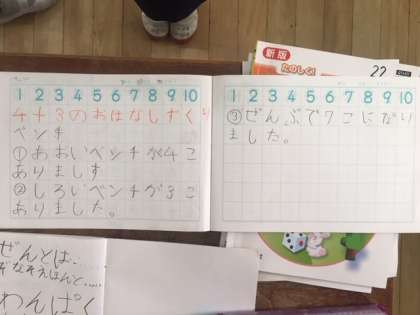 1 2 3 4 5 6 7 8 9 10
4+3のおはなしづくり
ベンチ
①あおいベンチが4こ
ありました
②しろいベンチが3こ
ありました。
1 2 3 4 5 6 7 8 9 10
③ぜんぶで7こになり
ました。
新版
たのしく!
22
ぜんとは、
わんぱく